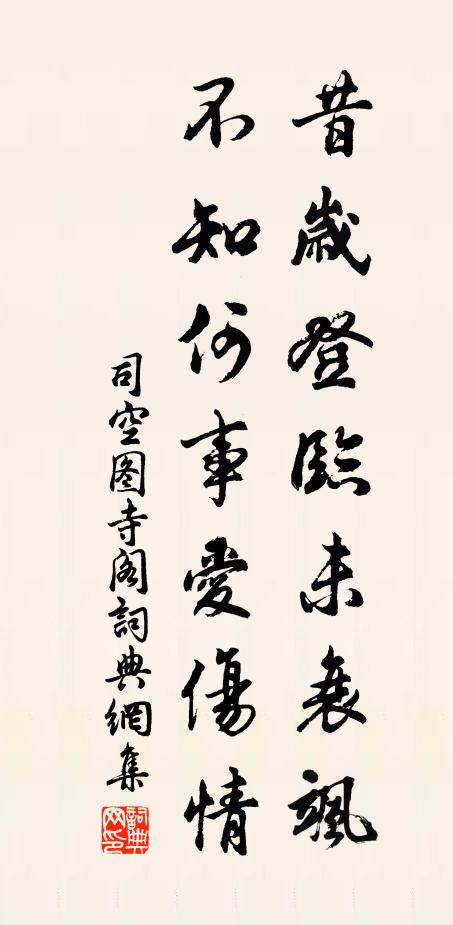 昔歲登臨未衰颯
不知何事愛傷情
司空图寺阁詞典網集
詞典网印